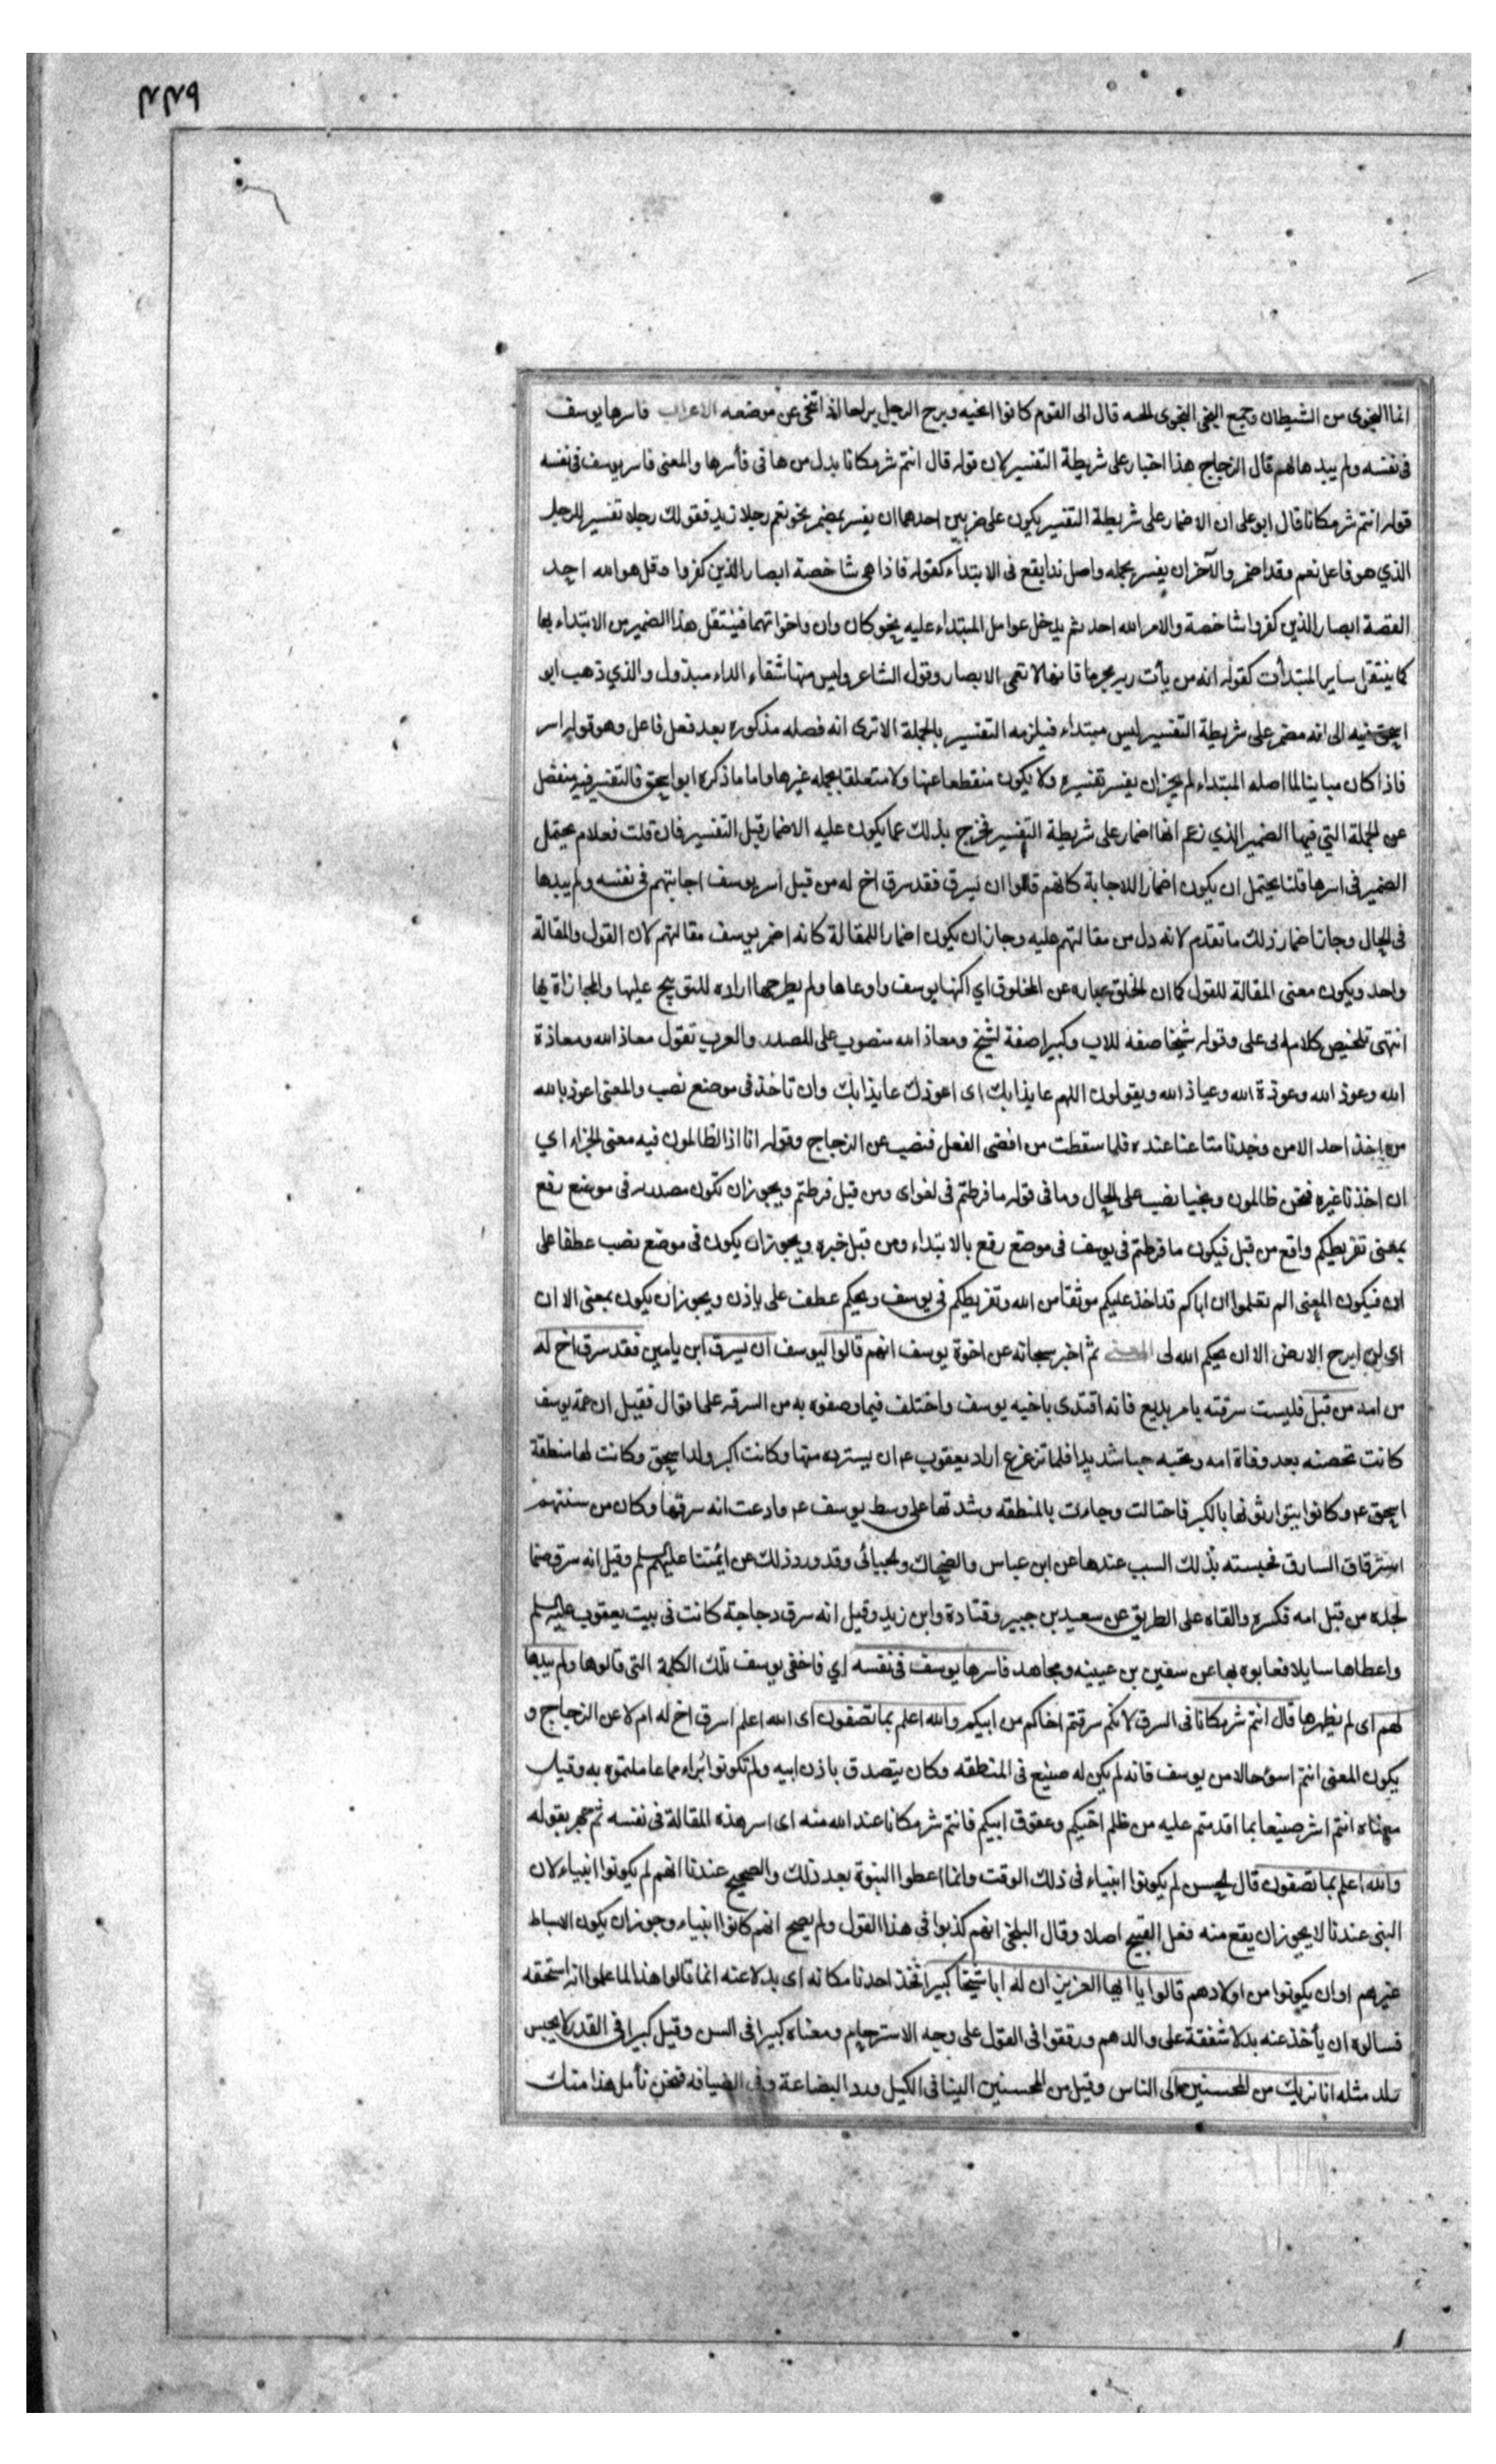 ٢٢٩
انما النجوى من الشيطان وجمع النجى النجوى انجيه قال انى اذا القوم كانوا انجيه وبرح الرجل براحا اذا تنحى عن موضعه الاعراب فاسرها يوسف
فى نفسه ولم يبدها لهم قال الزجاج هذا اضمار على شريطة التفسير لان قوله قال انتم شر مكانا بدل من ها فى فأسرها والمعنى فاسر يوسف فى نفسه
قوله انتم شر مكانا قال ابو على ان الاضمار على شريطة التفسير يكون على ضربين احدهما ان يفسر بمضمر نحو نعم رجلا زيد فقولك رجلا تفسير للرجل
الذي هو فاعل نعم وقد اضمر والآخر ان يفسر بجمله واصل ذا يقع فى الابتداء كقوله فاذا هى شاخصة ابصار الذين كفروا وقل هو الله احد
القصة ابصار الذين كفروا شاخصة والامر الله احد ثم يدخل عوامل المبتداء عليه نحو كان وان واخواتهما فينتقل هذا الضمير من الابتداء بها
كما ينتقل ساير المبتدأت كقوله انه من يأت ربه مجرما فانها لا تعمى الابصار وقول الشاعر وليس منها شفاء الداء مبذول والذي ذهب ابو
اسحق فيه الى انه مضمر على شريطة التفسير ليس مبتداء فيلزمه التفسير بالجملة الا ترى انه فصله مذكوره بعد فعل فاعل وهو قوله اسر
فاذا كان مباينا لما اصله المبتداء لم يجز ان يفسر تفسيره ولا يكون منقطعا عنها ولا متعلقا بجمله غيرها واما ما ذكره ابو اسحق فالتفسير فيه منفصل
عن الجملة التي فيها الضمير الذي زعم انها اضمار على شريطة التفسير فخرج بذلك عما يكون عليه الاضمار قبل التفسير فان قلت فعلام يحتمل
الضمير فى اسرها قلنا يحتمل ان يكون اضمارا للاجابة كانهم قالوا ان يسرق فقد سرق اخ له من قبل اسر يوسف اجابتهم فى نفسه ولم يبدها
فى الحال وجاز اضمار ذلك ما تقدم لانه دل من مقالتهم عليه وجاز ان يكون اضمارا للمقالة كانه اضمر يوسف مقالتهم لان القول والمقالة
واحد ويكون معنى المقالة للقول كما ان الخلق عباره عن المخلوق اي اكنها يوسف واوعاها ولم يطرحها اراده للتوبيخ عليها والمجازاة بها
انتهى تلخيص كلام ابى على وقوله شيخا صفه للاب وكبيرا صفة لشيخ ومعاذ الله منصوب على المصدر والعرب تقول معاذ الله ومعاذة
الله وعوذ الله وعوذة الله وعياذ الله ويقولون اللهم عايذا بك اى اعوذك عايذا بك وان تأخذ فى موضع نصب والمعنى اعوذ بالله
من اخذ احد الا من وجدنا متاعنا عنده فلما سقطت من افضى الفعل فنصب عن الزجاج وقوله انا اذا لظالمون فيه معنى الجزاء اي
ان اخذنا غيره فنحن ظالمون ونجيا نصب على الحال وما فى قوله ما فرطتم فى لغو اى ومن قبل فرطتم ويجوز ان تكون مصدريه فى موضع رفع
بمعنى تفريطكم واقع من قبل فيكون ما فرطتم فى يوسف فى موضع رفع بالابتداء ومن قبل خبره ويجوز ان يكون فى موضع نصب عطفا على
ان فيكون المعنى الم تعلموا ان اباكم قد اخذ عليكم موثقا من الله وتفريطكم فى يوسف ويحكم عطف على يأذن ويجوز ان يكون بمعنى الا ان
اى لن ابرح الارض الا ان يحكم الله لى المعنى ثم اخبر سبحانه عن اخوة يوسف انهم قالوا ليوسف ان يسرق ابن يامين فقد سرق اخ له
من امه من قبل فليست سرقته بامر بديع فانه اقتدى باخيه يوسف واختلف فيما وصفوه به من السرقه على اقوال فقيل ان عمة يوسف
كانت تحضنه بعد وفاة امه وتحبه حبا شديدا فلما ترعرع اراد يعقوب ع ان يسترده منها وكانت اكبر ولد اسحق وكانت لها منطقة
اسحق ع وكانوا يتوارثونها بالكبر فاحتالت وجاءت بالمنطقه وشدتها على وسط يوسف ع وادعت انه سرقها وكان من سنتهم
استرقاق السارق فحبسته بذلك السبب عندها عن ابن عباس والضحاك والجبائى وقد ورد ذلك عن ائمتنا عليهم السلم وقيل انه سرق صنما
لجده من قبل امه فكسره والقاه على الطريق عن سعيد بن جبير وقتادة وابن زيد وقيل انه سرق دجاجة كانت فى بيت يعقوب عليه السلم
واعطاها سايلا فعابوه بها عن سفين بن عيينه ومجاهد فاسرها يوسف فى نفسه اي فاخفى يوسف تلك الكلمة التى قالوها ولم يبدها
لهم اى لم يظهرها قال انتم شر مكانا فى السرق لانكم سرقتم اخاكم من ابيكم والله اعلم بما تصفون اى الله اعلم اسرق اخ له ام لا عن الزجاج و
يكون المعنى انتم اسوء حالا من يوسف فانه لم يكن له صنيع فى المنطقه وكان يتصدق باذن ابيه ولم تكونوا برآء مما عاملتموه به وقيل
معناه انتم اشر صنيعا بما اقدمتم عليه من ظلم اخيكم وعقوق ابيكم فانتم شر مكانا عند الله منه اى اسر هذه المقالة فى نفسه ثم جهر بقوله
والله اعلم بما تصفون قال الحسن لم يكونوا انبياء فى ذلك الوقت وانما اعطوا النبوة بعد ذلك والصحيح عندنا انهم لم يكونوا انبياء لان
النبى عندنا لا يجوز ان يقع منه فعل القبيح اصلا وقال البلخى انهم كذبوا فى هذا القول ولم يصح انهم كانوا انبياء وجوز ان يكون الاسباط
غيرهم او ان يكونوا من اولادهم قالوا يا ايها العزيز ان له ابا شيخا كبيرا فخذ احدنا مكانه اى بدلا عنه انما قالوا هذا لما علموا انه استحقه
فسالوه ان يأخذ عنه بدلا شفقة على والدهم ورققوا فى القول على وجه الاسترحام ومعناه كبيرا فى السن وقيل كبيرا فى القدر لا يحبس
ولد مثله انا نريك من المحسنين الى الناس وقيل من المحسنين الينا فى الكيل ورد البضاعة وفى الضيافه فنحن نأمل هذا منك